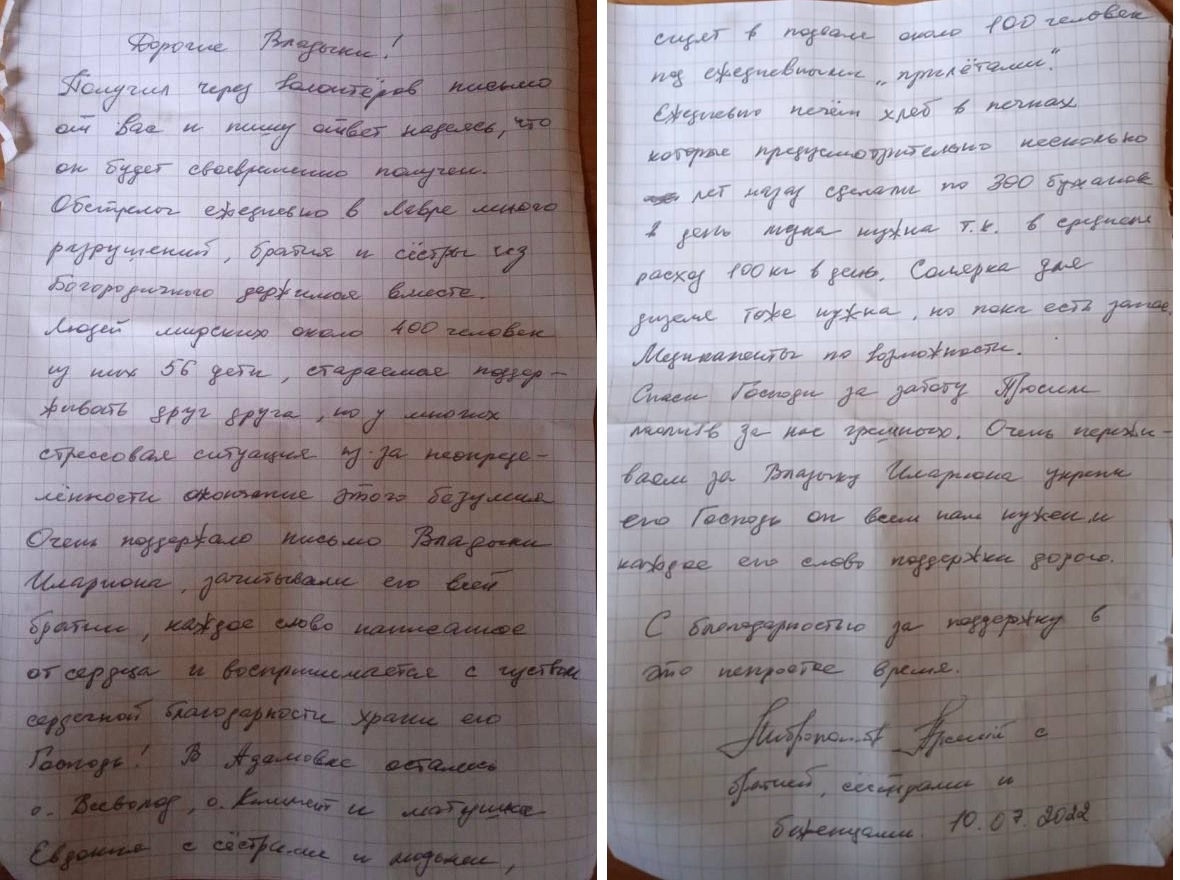 Дорогие Владыки!
Получил через волонтёров письмо
от Вас и пишу ответ надеясь, что
он будет своевременно получен.
Обстрелы ежедневно в Лавре много
разрушений, братия и сёстры из
Богородичного держимся вместе.
Людей мирских около 400 человек
из них 56 дети, стараемся поддер-
живать друг друга, но у многих
стрессовая ситуация из-за неопреде-
лённости окончание этого безумия
Очень поддержало письмо Владыки
Илариона, зачитывали его всей
братии, каждое слово написанное
от сердца и воспринимается с чуством
сердечной благодарности храни его
Господь! В Адамовке остались
о. Всеволод, о. Климент и матушка
Евдокия с сёстрами и людьми,
сидят в подвале около 100 человек
под ежедневными „прилётами".
Ежедневно печём хлеб в печках
которые предусмотрительно несколько
лет назад сделали по 300 буханок
в день мука нужна т.к. в среднем
расход 100 кг в день. Солярка для
дизеля тоже нужна, но пока есть запас.
Медикаменты по возможности.
Спаси Господи за заботу Просим
молитв за нас грешных. Очень пережи-
ваем за Владыку Илариона укрепи
его Господь он всем нам нужен и
каждое его слово поддержки дорого.
С благодарностью за поддержку в
это непростое время.
Митрополит Арсений с
братией, сёстрами и
беженцами. 10.07.2022